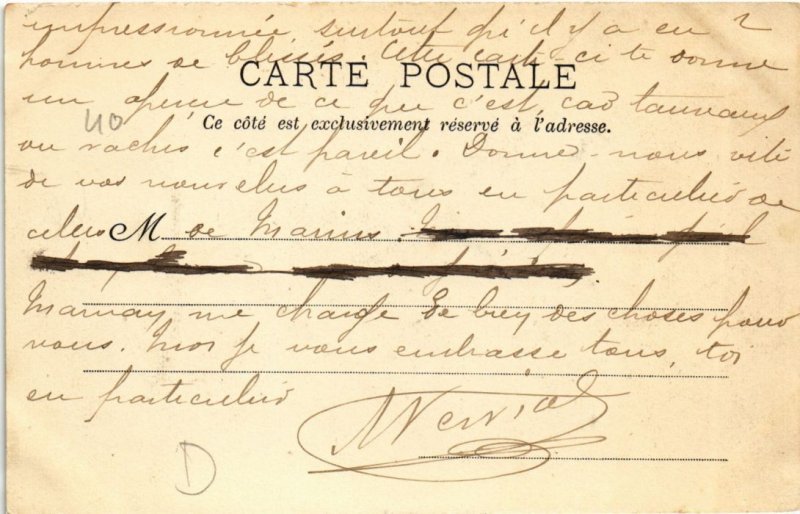 impressionnée, surtout qu'il y a eu 2
hommes de blessés. Cette carte-ci te donne
CARTE POSTALE
un aperçu de ce que c'est, car taureaux
40
Ce côté est exclusivement réservé à l'adresse.
ou vaches c'est pareil. Donne-nous vite
de vos nouvelles à tous en particulier de
celles M de Marius.
Maman me charge de bien des choses pour
vous. Moi je vous embrasse tous, toi
en particulier
D